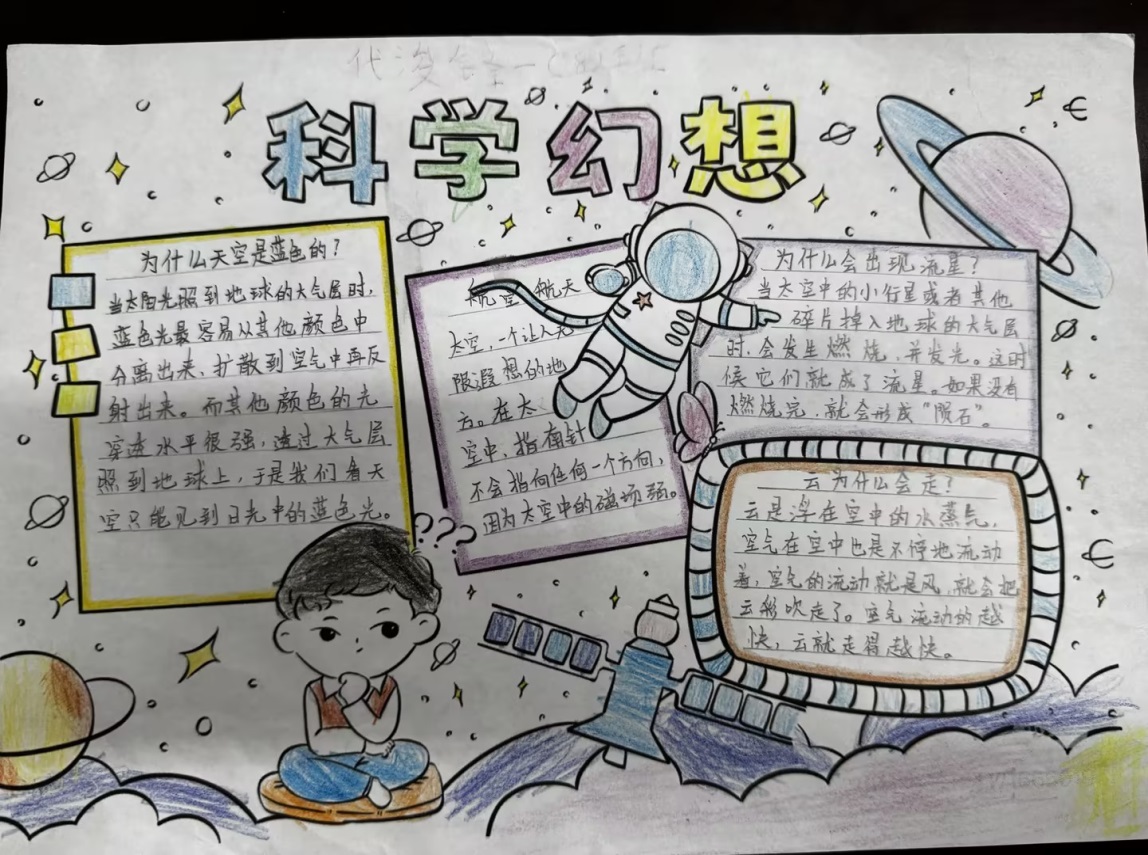 科学幻想
为什么天空是蓝色的？
当太阳光照到地球的大气层时，
蓝色光最容易从其他颜色中
分离出来、扩散到空气中再反
射出来。而其他颜色的光
穿透水平很强，透过大气层
照到地球上，于是我们看天
空只能见到日光中的蓝色光。
航空航天
太空，一个让人无
限遐想的地
方。在太
空中，指南针
不会指向任何一个方向，
因为太空中的磁场弱。
???
为什么会出现流星？
当太空中的小行星或者其他
碎片掉入地球的大气层
时，会发生燃烧，并发光。这时
候它们就成了流星。如果没有
燃烧完，就会形成“陨石”。
云为什么会走？
云是浮在空中的水蒸气，
空气在空中也是不停地流动
着，空气的流动就是风，就会把
云彩吹走了。空气流动的越
快，云就走得越快。